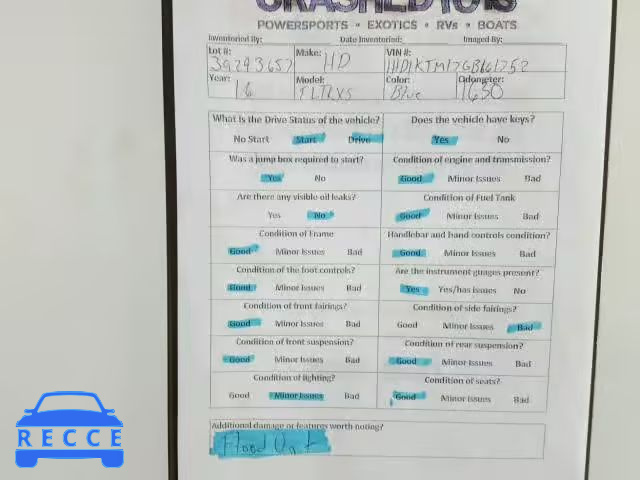 CRASHEDTOYS
POWERSPORTS • EXOTICS • RVs • BOATS
Inventoried By: Date Inventoried: Imaged By:
Lot #: Make: VIN #:
39293657 HD 1HD1KTM17GB661252
Year: Model: Color: Odometer:
16 FLTRXS Blue 1630
What is the Drive Status of the vehicle? Does the vehicle have keys?
No Start Start Drive Yes No
Was a jump box required to start? Condition of engine and transmission?
Yes No Good Minor Issues Bad
Are there any visible oil leaks? Condition of Fuel Tank
Yes No Good Minor Issues Bad
Condition of Frame Handlebar and hand controls condition?
Good Minor Issues Bad Good Minor Issues Bad
Condition of the foot controls? Are the instrument guages present?
Good Minor Issues Bad Yes Yes/has issues No
Condition of front fairings? Condition of side fairings?
Good Minor Issues Bad Good Minor Issues Bad
Condition of front suspension? Condition of rear suspension?
Good Minor Issues Bad Good Minor Issues Bad
Condition of lighting? Condition of seats?
Good Minor Issues Bad Good Minor Issues Bad
Additional damage or features worth noting?
Flood Unit
RECCE